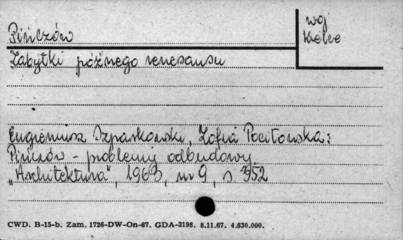 Pińczów
woj
Kielce
Zabytki późnego renesansu
Eugeniusz Szparkowski, Zofia Pociłowska:
Pińczów - problemy odbudowy.
"Architektura", 1963, nr 9, s. 352
CWD. B-15-b. Zam. 1726-DW-On-67. GDA-3198. 8.11.67. 4.630.000.